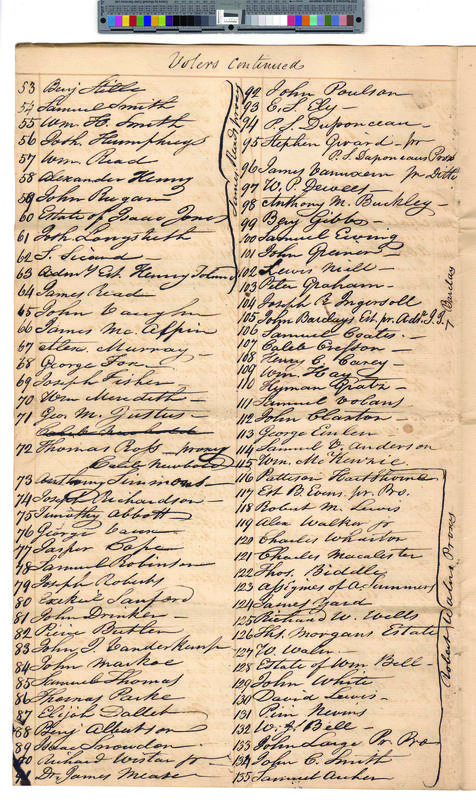 Voters continued
53 Benj Stille
54 Samuel Smith
55 Wm. H. Smith
56 Josh. Humphreys
57 Wm. Read
58 Alexander Henry
59 John Dugan
60 Estate of Isaac Jones
61 Josh Longstreth
62 S. Girard
63 Adm Est. Henry
64 James Read
James Read proxy
65 John Vaughn
66 James Mc Alpin
67 Murray
68 George Fox
69 Joseph Fisher
70 Wm Meredith
71 Geo. M. Justus
Caleb Newbold
72 Thomas Ross proxy
Caleb Newbold
73 Anthony Simmons
74 Joseph Richardson
75 Timothy Abbott
76 George Vaux
77 Jasper Cope
78 Samuel Robinson
79 Joseph Roberts
80 Ezekiel Sanford
81 John Drinker
82 Pierce Butler
83 John J. Vanderkemp
84 John Markoe
85 Samuel Thomas
86 Thomas Parke
87 Elijah Dallet
88 Benj Albertson
89 Isaac Snowden
90 Richard Wistar Jr
91 Dr. James Mease
92 John Poulson
93 E. S. Ely
94 P. S. Duponceau
95 Stephen Girard pr
P. S. Duponceau Prox
96 James Vanuxem pr Ditto
97 W. P. Dewees
98 Anthony M. Buckley
99 Benj Gibbs
100 Samuel Ewing
101 John Greiner
102 Lewis
103 Peter Graham
104 Joseph R Ingersoll
105 John Barclays Est. pr. Adr. J. J.
Barclay
106 Samuel Coates
107 Caleb Cresson
108 Henry C. Carey
109 Wm. Hay
110 Hyman Gratz
111 Samuel Volans
112 John Claxton
113 George Emlen
114 Samuel Anderson
115 Wm. McKenzie
116 Pattison Hartshorne
117 Est B. Evans pr. Pro.
118 Robert M. Lewis
119 Alex Walker jr
120 Charles Wharton
121 Charles Macalester
122 Thos. Biddle
123 Assignees of A. Summers
124 James Izard
125 Richard W. Wells
126 Ths. Morgans Estate
127 W. Waln
128 Estate of Wm Bell
129 John White
130 David Lewis
131 Pim Nevins
132 W. J. Bell
133 John Large Pr. Pro
134 John C. Smith
135 Samuel Archer
Robert Walns Proxes